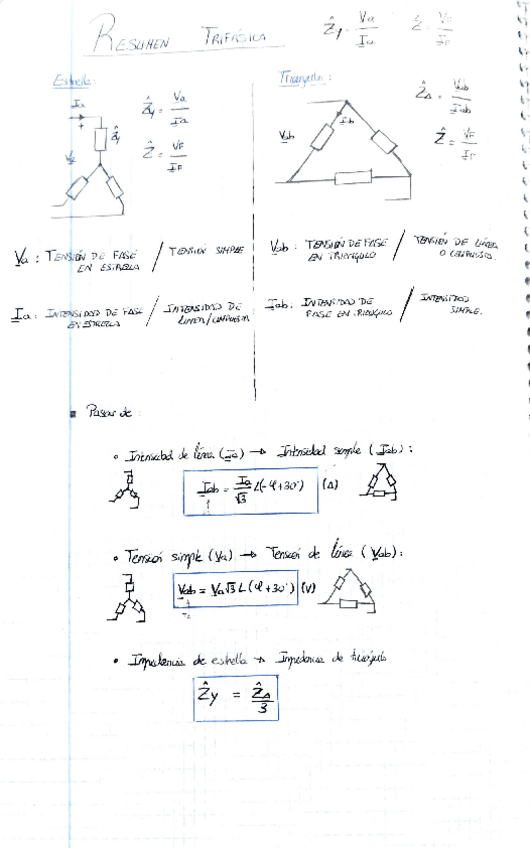 RESUMEN TRIFÁSICA
Ẑy = Va / Ia
Ẑ = VF / IF
Estrella:
Ia
Ẑy
Ẑy = Va / Ia
Ẑ = VF / IF
Triángulo:
Vab
Iab
ẐΔ = Vab / Iab
Ẑ = VF / IF
Va: TENSIÓN DE FASE EN ESTRELLA / TENSIÓN SIMPLE
Vab: TENSIÓN DE FASE EN TRIÁNGULO / TENSIÓN DE LÍNEA O COMPUESTA.
Ia: INTENSIDAD DE FASE EN ESTRELLA / INTENSIDAD DE LINEA/COMPUESTA
Iab: INTENSIDAD DE FASE EN TRIÁNGULO / INTENSIDAD SIMPLE.
Pasar de:
• Intensidad de línea (Ia) → Intensidad simple (Iab):
Iab = Ia / √3 ∠(-φ+30°) (A)
• Tensión simple (Va) → Tensión de línea (Vab):
Vab = Va√3 ∠(φ+30°) (V)
• Impedancia de estrella → Impedancia de triángulo
Ẑy = ẐΔ / 3